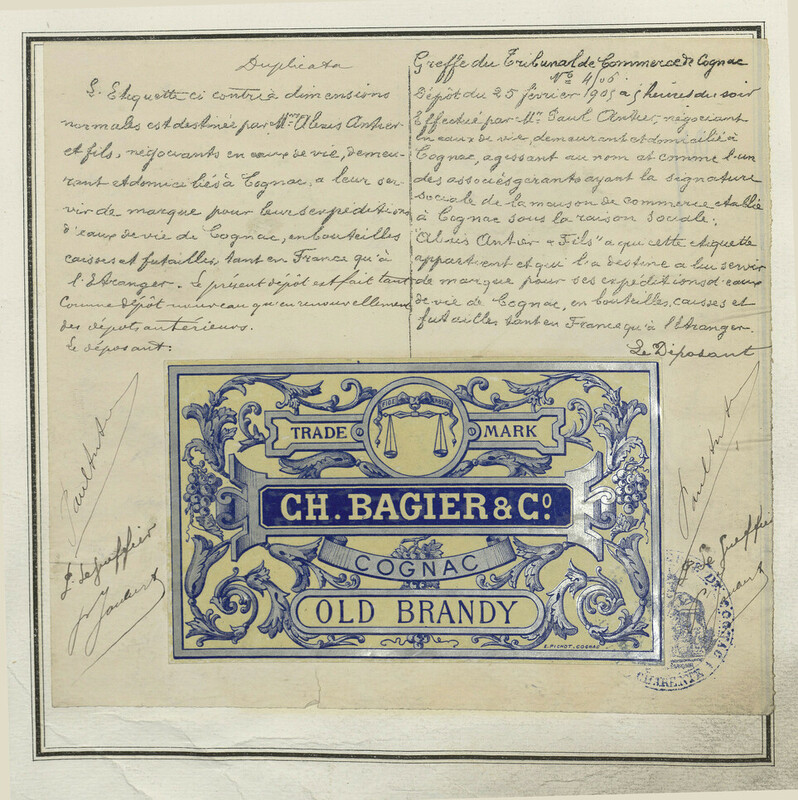 Duplicata
L'Etiquette ci contre à dimensions
normales est destinée par Mrs Alexis Antier
et fils, négociants en eaux de vie, demeu-
rant et domiciliés à Cognac, a leur ser-
vir de marque pour leurs expéditions
d'eaux de vie de Cognac, en bouteilles
caisses et futailles, tant en France qu'à
l'Etranger. Le présent dépôt est fait tant
comme dépôt nouveau qu'en renouvellement
des dépôts antérieurs.
Le déposant:
Greffe du Tribunal de Commerce de Cognac
No
Dépôt du 25 février 1905 à 5 heures du soir
Effectué par Mr. Paul Antier, négociant
en eaux de vie, demeurant et domicilié à
Cognac, agissant au nom et comme l'un
des associés gérants ayant la signature
sociale de la maison de commerce établie
à Cognac sous la raison sociale:
"Alexis Antier & Fils" a qui cette etiquette
appartient et qui l'a destine a lui servir
de marque pour ses expéditions d'eaux
de vie de Cognac, en bouteilles, caisses et
futailles tant en France qu'à l'étranger.
Le Déposant
Paul Antier
P. Le Greffier
Paul Antier
P. Le Greffier
TRADE MARK
CH. BAGIER & Co.
COGNAC
OLD BRANDY
E. PICHOT. COGNAC
DE COGNAC
CHARENTE